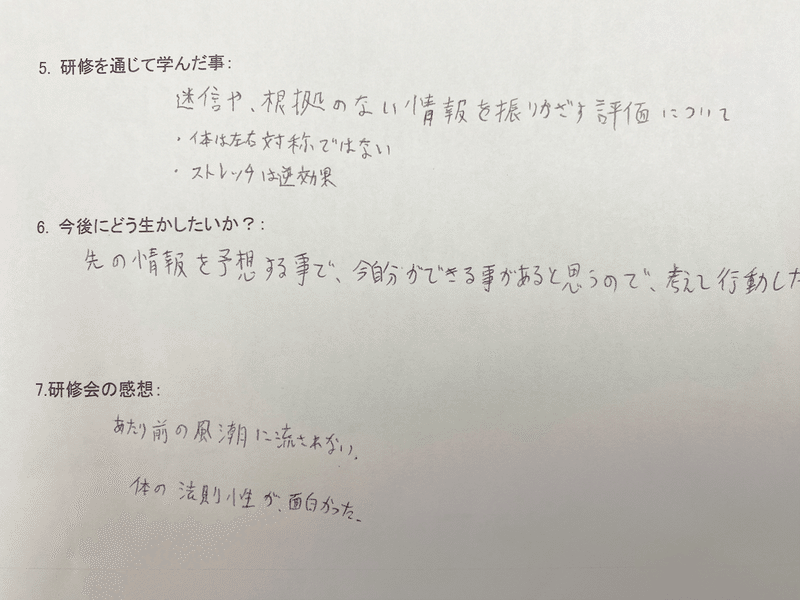 5. 研修を通じて学んだ事：
迷信や、根拠のない情報を振りかざす評価について
・体は左右対称ではない
・ストレッチは逆効果
6. 今後にどう生かしたいか？：
先の情報を予想する事で、今自分ができる事があると思うので、考えて行動した
7.研修会の感想：
あたり前の風潮に流されない。
体の法則性が、面白かった。